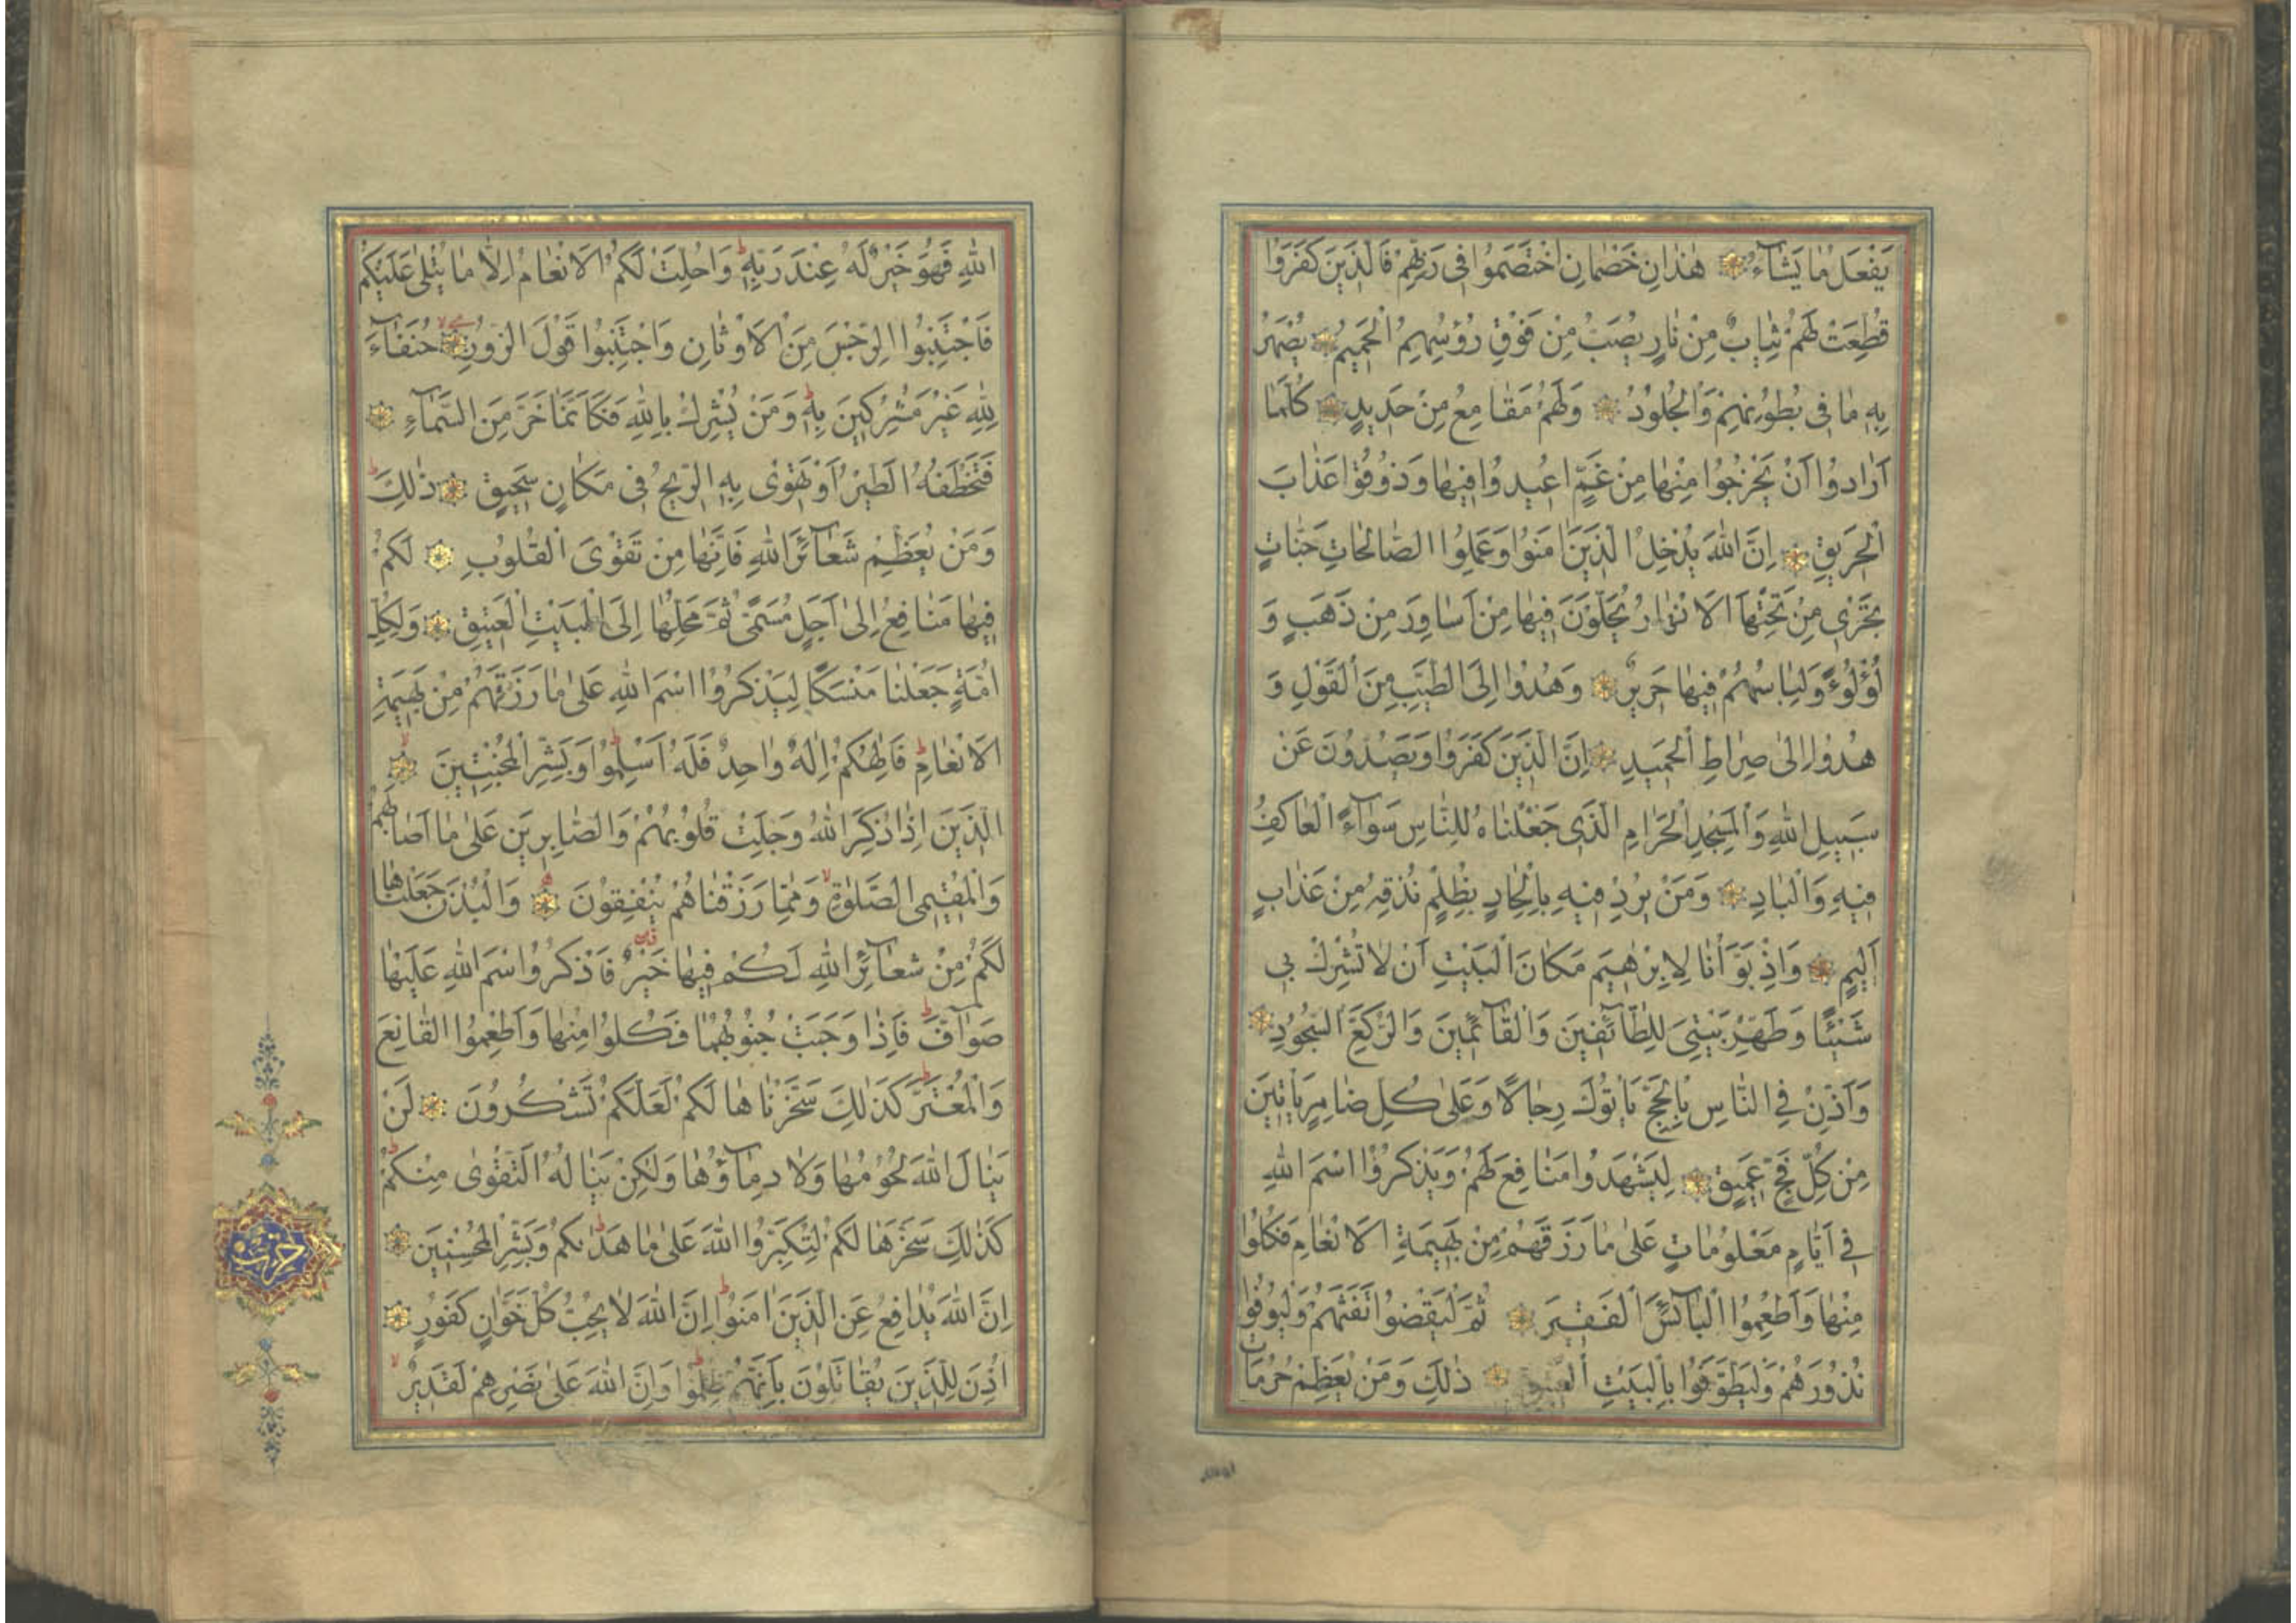 يَفْعَلُ مَا يَشَآءُ هٰذَانِ خَصْمَانِ اخْتَصَمُوا فِي رَبِّهِمْ فَالَّذِينَ كَفَرُوا
قُطِّعَتْ لَهُمْ ثِيَابٌ مِنْ نَارٍ يُصَبُّ مِنْ فَوْقِ رُؤُسِهِمُ الْحَمِيمُ يُصْهَرُ
بِهِ مَا فِي بُطُونِهِمْ وَالْجُلُودُ وَلَهُمْ مَقَامِعُ مِنْ حَدِيدٍ كُلَّمَا
اَرَادُوا اَنْ يَخْرُجُوا مِنْهَا مِنْ غَمٍّ اُعِيدُوا فِيهَا وَذُوقُوا عَذَابَ
الْحَرِيقِ اِنَّ اللّٰهَ يُدْخِلُ الَّذِينَ اٰمَنُوا وَعَمِلُوا الصَّالِحَاتِ جَنَّاتٍ
تَجْرِي مِنْ تَحْتِهَا الْاَنْهَارُ يُحَلَّوْنَ فِيهَا مِنْ اَسَاوِرَ مِنْ ذَهَبٍ وَ
لُؤْلُؤًا وَلِبَاسُهُمْ فِيهَا حَرِيرٌ وَهُدُوا اِلَى الطَّيِّبِ مِنَ الْقَوْلِ وَ
هُدُوا اِلٰى صِرَاطِ الْحَمِيدِ اِنَّ الَّذِينَ كَفَرُوا وَيَصُدُّونَ عَنْ
سَبِيلِ اللّٰهِ وَالْمَسْجِدِ الْحَرَامِ الَّذِي جَعَلْنَاهُ لِلنَّاسِ سَوَآءً الْعَاكِفُ
فِيهِ وَالْبَادِ وَمَنْ يُرِدْ فِيهِ بِاِلْحَادٍ بِظُلْمٍ نُذِقْهُ مِنْ عَذَابٍ
اَلِيمٍ وَاِذْ بَوَّأْنَا لِاِبْرٰهِيمَ مَكَانَ الْبَيْتِ اَنْ لَا تُشْرِكْ بِي
شَيْئًا وَطَهِّرْ بَيْتِيَ لِلطَّآئِفِينَ وَالْقَآئِمِينَ وَالرُّكَّعِ السُّجُودِ
وَاَذِّنْ فِي النَّاسِ بِالْحَجِّ يَأْتُوكَ رِجَالًا وَعَلٰى كُلِّ ضَامِرٍ يَأْتِينَ
مِنْ كُلِّ فَجٍّ عَمِيقٍ لِيَشْهَدُوا مَنَافِعَ لَهُمْ وَيَذْكُرُوا اسْمَ اللّٰهِ
فِي اَيَّامٍ مَعْلُومَاتٍ عَلٰى مَا رَزَقَهُمْ مِنْ بَهِيمَةِ الْاَنْعَامِ فَكُلُوا
مِنْهَا وَاَطْعِمُوا الْبَآئِسَ الْفَقِيرَ ثُمَّ لْيَقْضُوا تَفَثَهُمْ وَلْيُوفُوا
نُذُورَهُمْ وَلْيَطَّوَّفُوا بِالْبَيْتِ الْعَتِيقِ ذٰلِكَ وَمَنْ يُعَظِّمْ حُرُمَاتِ
اللّٰهِ فَهُوَ خَيْرٌ لَهُ عِنْدَ رَبِّهِ وَاُحِلَّتْ لَكُمُ الْاَنْعَامُ اِلَّا مَا يُتْلٰى عَلَيْكُمْ
فَاجْتَنِبُوا الرِّجْسَ مِنَ الْاَوْثَانِ وَاجْتَنِبُوا قَوْلَ الزُّورِ حُنَفَآءَ
لِلّٰهِ غَيْرَ مُشْرِكِينَ بِهِ وَمَنْ يُشْرِكْ بِاللّٰهِ فَكَاَنَّمَا خَرَّ مِنَ السَّمَآءِ
فَتَخْطَفُهُ الطَّيْرُ اَوْ تَهْوِي بِهِ الرِّيحُ فِي مَكَانٍ سَحِيقٍ ذٰلِكَ
وَمَنْ يُعَظِّمْ شَعَآئِرَ اللّٰهِ فَاِنَّهَا مِنْ تَقْوَى الْقُلُوبِ لَكُمْ
فِيهَا مَنَافِعُ اِلٰى اَجَلٍ مُسَمًّى ثُمَّ مَحِلُّهَا اِلَى الْبَيْتِ الْعَتِيقِ وَلِكُلِّ
اُمَّةٍ جَعَلْنَا مَنْسَكًا لِيَذْكُرُوا اسْمَ اللّٰهِ عَلٰى مَا رَزَقَهُمْ مِنْ بَهِيمَةِ
الْاَنْعَامِ فَاِلٰهُكُمْ اِلٰهٌ وَاحِدٌ فَلَهُ اَسْلِمُوا وَبَشِّرِ الْمُخْبِتِينَ
الَّذِينَ اِذَا ذُكِرَ اللّٰهُ وَجِلَتْ قُلُوبُهُمْ وَالصَّابِرِينَ عَلٰى مَا اَصَابَهُمْ
وَالْمُقِيمِي الصَّلٰوةِ وَمِمَّا رَزَقْنَاهُمْ يُنْفِقُونَ وَالْبُدْنَ جَعَلْنَاهَا
لَكُمْ مِنْ شَعَآئِرِ اللّٰهِ لَكُمْ فِيهَا خَيْرٌ فَاذْكُرُوا اسْمَ اللّٰهِ عَلَيْهَا
صَوَآفَّ فَاِذَا وَجَبَتْ جُنُوبُهَا فَكُلُوا مِنْهَا وَاَطْعِمُوا الْقَانِعَ
وَالْمُعْتَرَّ كَذٰلِكَ سَخَّرْنَاهَا لَكُمْ لَعَلَّكُمْ تَشْكُرُونَ لَنْ
يَنَالَ اللّٰهَ لُحُومُهَا وَلَا دِمَآؤُهَا وَلٰكِنْ يَنَالُهُ التَّقْوٰى مِنْكُمْ
كَذٰلِكَ سَخَّرَهَا لَكُمْ لِتُكَبِّرُوا اللّٰهَ عَلٰى مَا هَدٰىكُمْ وَبَشِّرِ الْمُحْسِنِينَ
اِنَّ اللّٰهَ يُدَافِعُ عَنِ الَّذِينَ اٰمَنُوا اِنَّ اللّٰهَ لَا يُحِبُّ كُلَّ خَوَّانٍ كَفُورٍ
اُذِنَ لِلَّذِينَ يُقَاتَلُونَ بِاَنَّهُمْ ظُلِمُوا وَاِنَّ اللّٰهَ عَلٰى نَصْرِهِمْ لَقَدِيرٌ
حزب